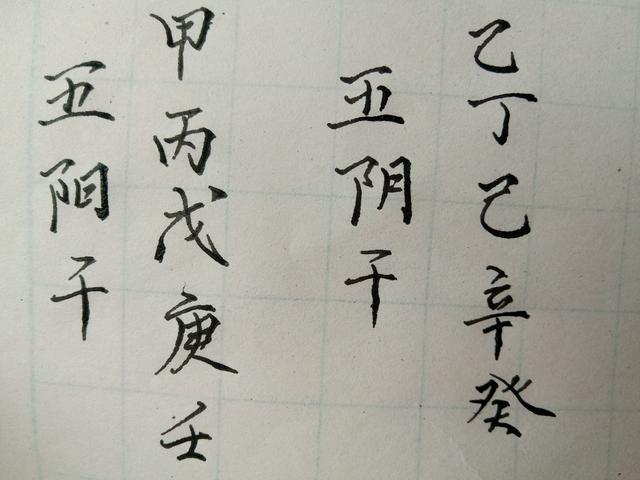 乙丁己辛癸
五阴干
甲丙戊庚壬
五阳干